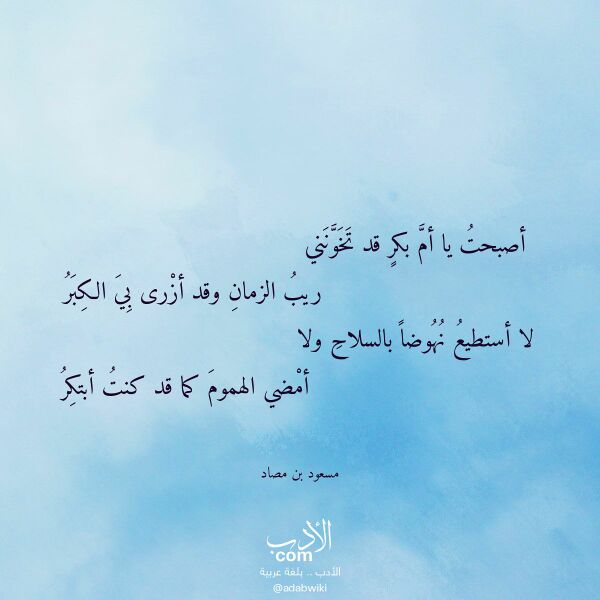 أصبحتُ يا أمَّ بكرٍ قد تَخَوَّنَني
ريبُ الزمانِ وقد أزْرى بِيَ الكِبَرُ
لا أستطيعُ نُهُوضاً بالسلاحِ ولا
أمْضي الهمومَ كما قد كنتُ أبتكِرُ
مسعود بن مصاد
الأدب
com
الأدب .. بلغة عربية
@adabwiki